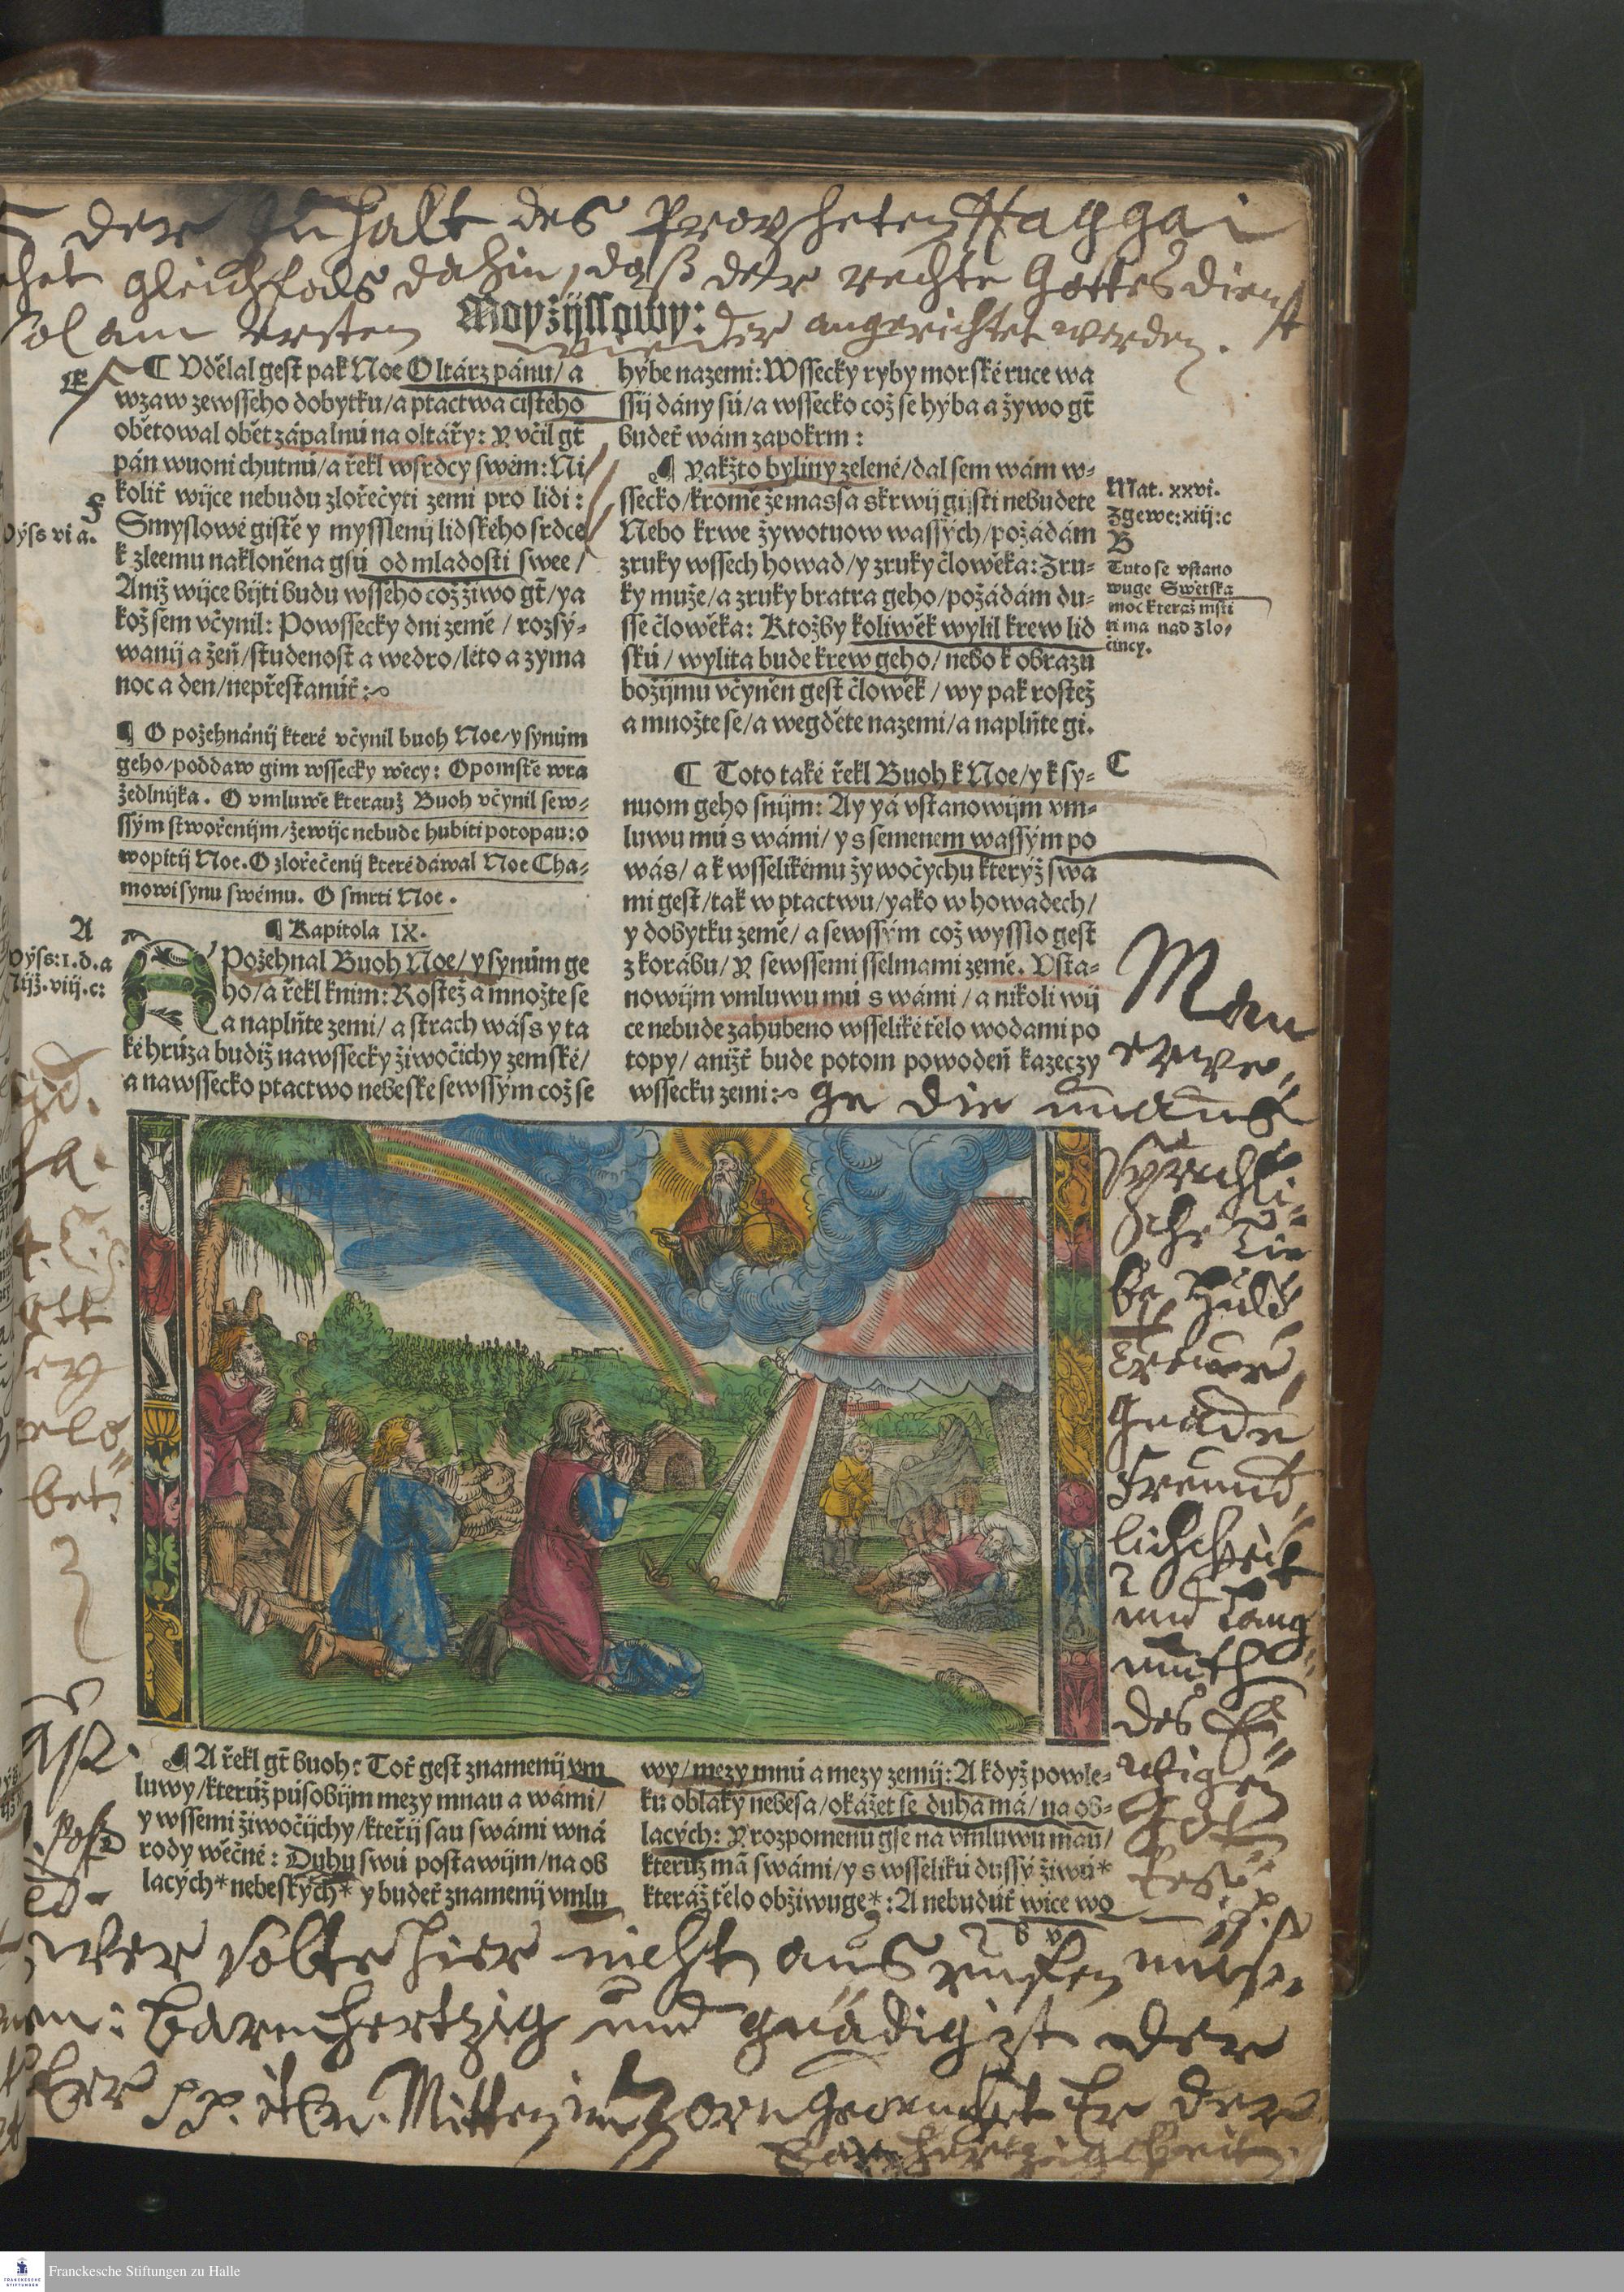 der Inhalt des Propheten Haggai
gleichfals dahin, daß der rechte Gottesdienst
sol am ersten wieder angerichtet werden.
Moyžijssowy:
E
¶ Vdělal gest pak Noe Oltárz pánu/ a
wzaw zewsseho dobytku/a ptactwa čistého
obětowal obět zápalnú na oltářy: Y včil gt̄
pán wuoni chutnú/a řekl wsrdcy swém: Ni
koliť wijce nebudu zlořečyti zemi pro lidi:
F
Smyslowé gistě y mysslenij lidského srdce
k zleemu nakloněna gsú od mladosti swee/
Aniž wijce bijti budu wsseho což žiwo gt̄/ya
kož sem včynil: Powssecky dni země/ rozsý-
wanij a žeň/studenost a wedro/léto a zyma
noc a den/nepřestanúť:
¶ O požehnánij které včynil buoh Noe/y synům
geho/poddaw gim wssecky wěcy: O pomstě wra
žedlnijka. O vmluwě kterauž Buoh včynil sew-
ssým stwořenijm/že wijc nebude hubiti potopau: o
wopitij Noe. O zlořečenij které dáwal Noe Cha-
mowi synu swému. O smrti Noe.
¶ Kapitola IX.
A
Wýss: I. d. a
Nijž. viij. c:
A Požehnal Buoh Noe/ y synům ge
ho/a řekl knim: Rostež a množte se
a naplňte zemi/ a strach wáss y ta
ké hrúza budiž nawssecky žiwočichy zemské/
a nawssecko ptactwo nebeské sewssým což se
hýbe nazemi: Wssecky ryby morské ruce wa
ssij dány sú/a wssecko což se hýba a žywo gt̄
budeť wám zapokrm:
¶ Yakžto byliny zelené/dal sem wám w-
ssecko/kromě že massa skrwij gijsti nebudete
Nebo krwe žywotuow wassých/požádám
zruky wssech howad/y zruky člowěka: Zru-
ky muže/a zruky bratra geho/požádám du-
sse člowěka: Ktožby koliwěk wylil krew lid
skú/ wylita bude krew geho/ nebo k obrazu
božijmu včyněn gest člowěk/ wy pak rostež
a množte se/a wegděte nazemi/a naplňte gi.
Mat. xxvi.
Zgewe: xiij: c
B
Tuto se vstano
wuge Swětská
moc kteráž msti
ti má nad zlo/
čincy.
C
¶ Toto také řekl Buoh k Noe/y k sy-
nuom geho snijm: Ay yá vstanowijm vm-
luwu mú s wámi/ y s semenem wassým po
wás/ a k wsselikému žywočychu kterýž swa
mi gest/tak w ptactwu/yako w howadech/
y dobytku země/ a sewssým což wysslo gest
z korábu/ Y sewssemi sselmami země. Vsta-
nowijm vmluwu mú s wámi/a nikoli wij
ce nebude zahubeno wsseliké tělo wodami po
topy/ anižť bude potom powodeň kazeczy
wssecku zemi:
Man
erwe-
ge die unaus
sprechli-
che Lie
be Huld
Treue,
Gnade
Freund-
lichkeit
und Lang
muth
des Ewi
Gottes
¶ A řekl gt̄ buoh: Toť gest znamenij vm
luwy/kterúž púsobijm mezy mnau a wámi/
y wssemi žiwočijchy/kteřij sau swámi wná
rody wěčné: Duhu swú postawijm/na ob
lacých* nebeských* y budeť znamenij vmlu
wy/mezy mnú a mezy zemij: A když powle-
ku oblaky nebesa/okážeť se duhá má/ na ob-
lacých: Y rozpomenu gse na vmluwu mau/
kterúž mā swámi/y s wsselikú dussý žiwú*
kteráž tělo obžiwuge*: A nebudúť wice wo
wer solte hier nicht ausruffen müs-
sen: Barmhertzig und gnädig ist der
Mitten im Zorn gedencket Er der
Barmhertzigkeit.
Franckesche Stiftungen zu Halle